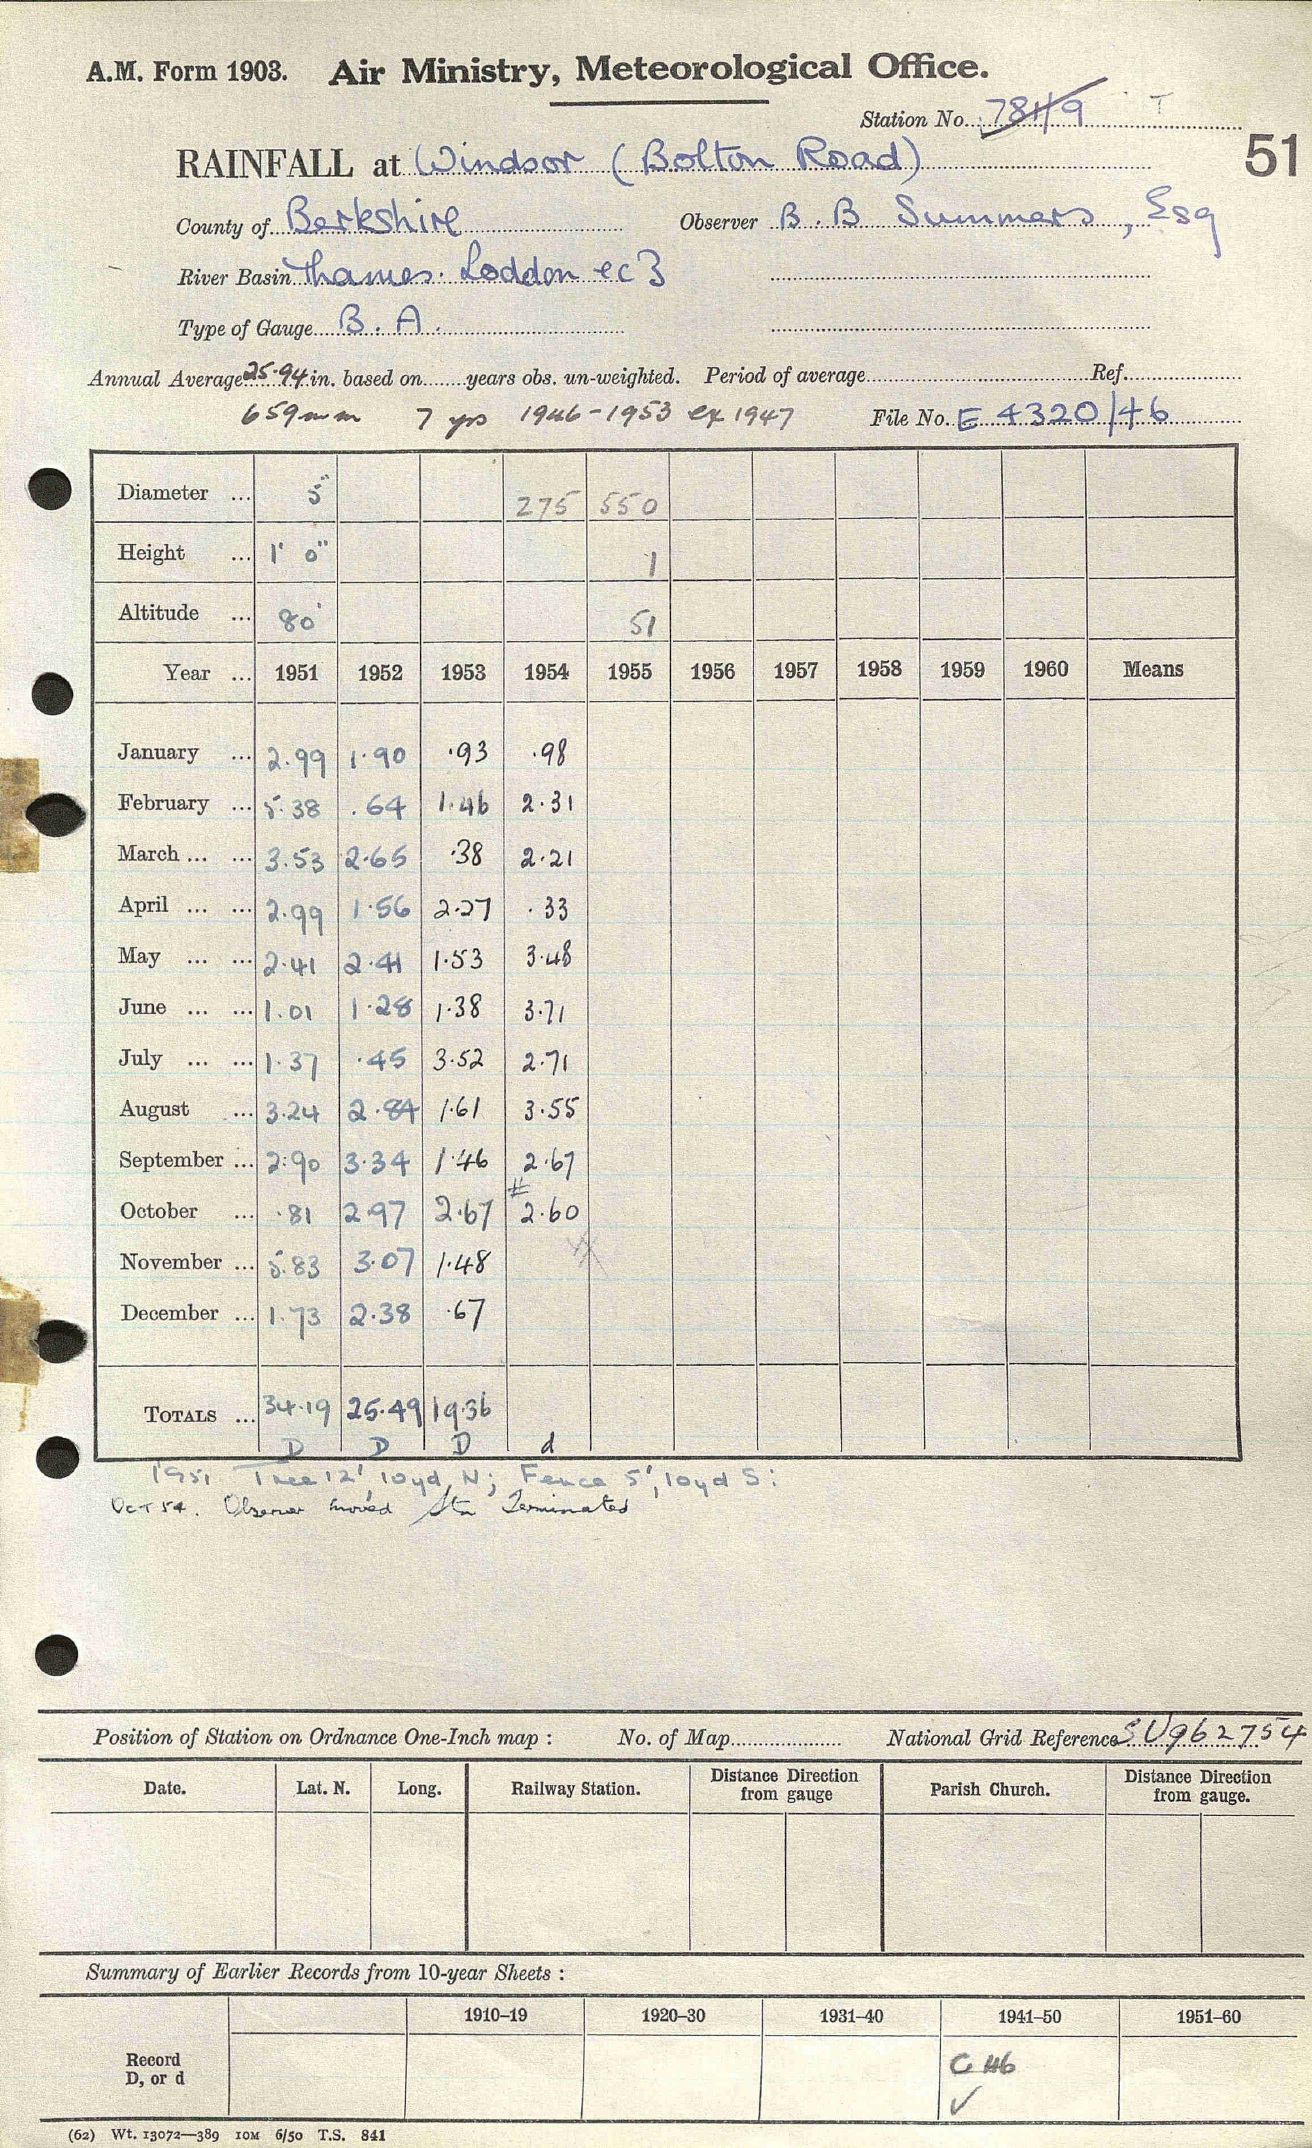 A.M. Form 1903. Air Ministry, Meteorological Office.
Station No. 7811/9 T
51
RAINFALL at Windsor (Bolton Road)
County of Berkshire Observer B. B Summers, Esq
River Basin Thames. Loddon ec 3
Type of Gauge B. A.
Annual Average 25.94 in. based on years obs. un-weighted. Period of average Ref.
659mm 7 yrs 1946-1953 ex 1947 File No. E 4320/46
Diameter ... 5" 275 550
Height ... 1' 0" 1
Altitude ... 80' 51
Year ... 1951 1952 1953 1954 1955 1956 1957 1958 1959 1960 Means
January ... 2.99 1.90 .93 .98
February ... 5.38 .64 1.46 2.31
March ... ... 3.53 2.65 .38 2.21
April ... ... 2.99 1.56 2.27 .33
May ... ... 2.41 2.41 1.53 3.48
June ... ... 1.01 1.28 1.38 3.71
July ... ... 1.37 .45 3.52 2.71
August ... 3.24 2.84 1.61 3.55
September ... 2.90 3.34 1.46 2.67
#
October ... .81 2.97 2.67 2.60
November ... 5.83 3.07 1.48
December ... 1.73 2.38 .67
TOTALS ... 34.19 25.49 19.36
D D D d
1951 Tree 12', 10yd N; Fence 5', 10yd S:
Oct 54. Observer moved Stn Terminated
Position of Station on Ordnance One-Inch map : No. of Map National Grid Reference SU962754
Date. Lat. N. Long. Railway Station. Distance Direction from gauge Parish Church. Distance Direction from gauge.
Summary of Earlier Records from 10-year Sheets :
1910–19 1920–30 1931–40 1941–50 1951–60
Record C 46
D, or d ✓
(62) Wt. 13072—389 10M 6/50 T.S. 841